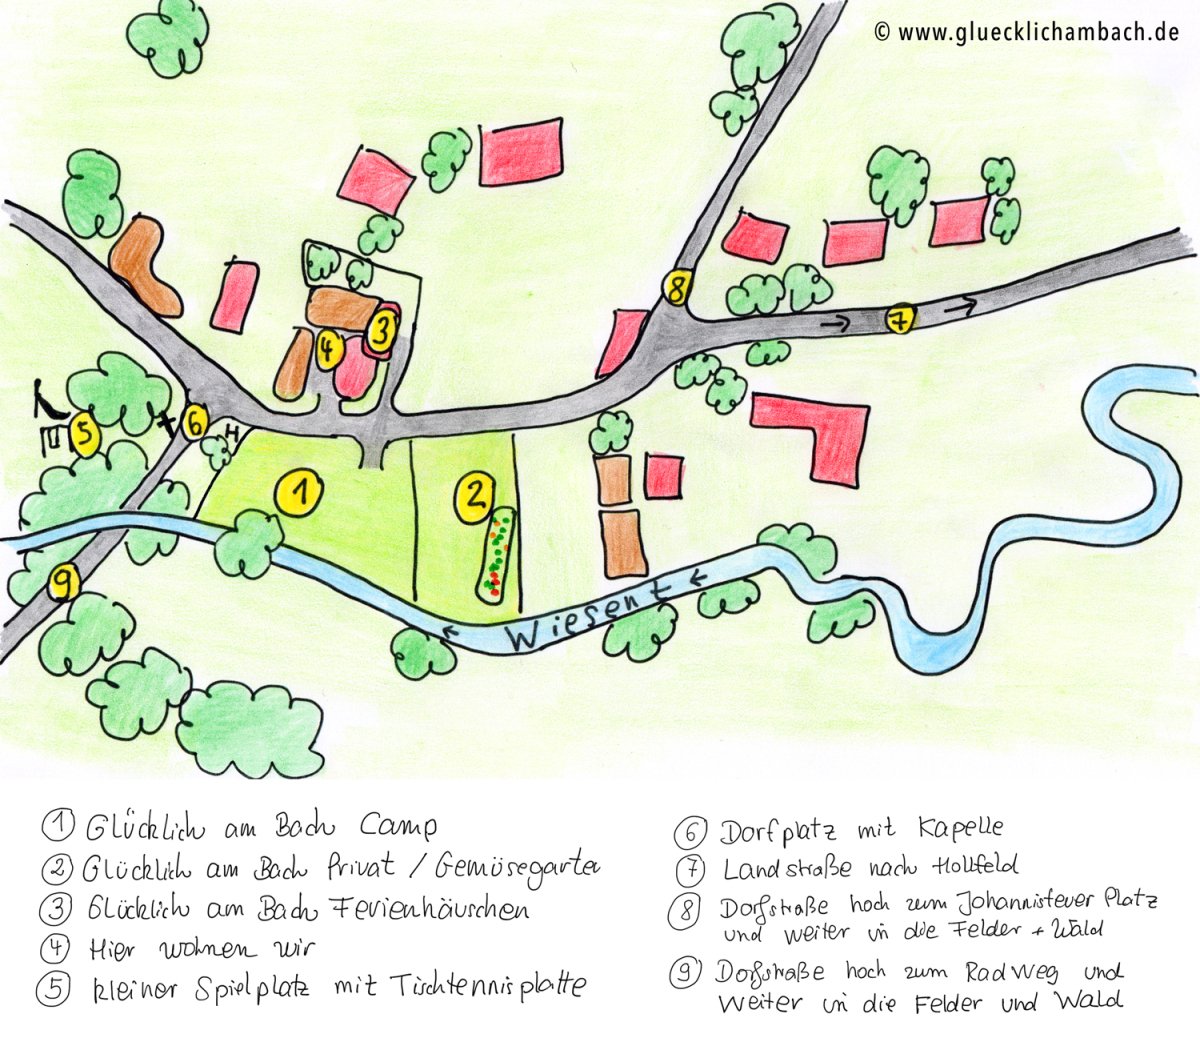 © www.gluecklichambach.de
8
7
3
4
6
H
5
1
2
9
Wiesent
① Glücklich am Bach Camp
② Glücklich am Bach Privat / Gemüsegarten
③ Glücklich am Bach Ferienhäuschen
④ Hier wohnen wir
⑤ kleiner Spielplatz mit Tischtennisplatte
⑥ Dorfplatz mit Kapelle
⑦ Landstraße nach Hollfeld
⑧ Dorfstraße hoch zum Johannisfeuer Platz
und weiter in die Felder + Wald
⑨ Dorfstraße hoch zum Radweg und
weiter in die Felder und Wald